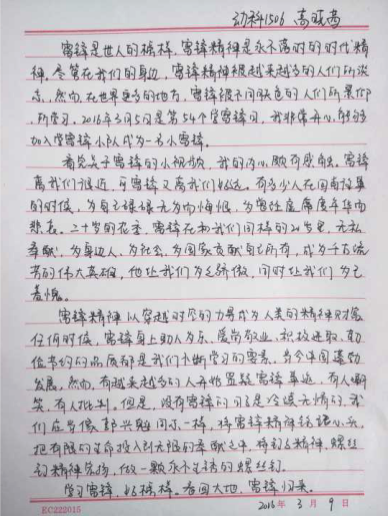 幼科1506 高晓茜
雷锋是世人的榜样，雷锋精神是永不落时的时代精
神。尽管在我们的身边，雷锋精神被越来越多的人们所淡
忘，然而，在世界更多的地方，雷锋被不同肤色的人们所景仰
，所学习。2016年3月5日是第54个学雷锋日，我非常开心，能够
加入学雷锋小队成为一名小雷锋。
看完关于雷锋的小视频，我的内心颇有感触。雷锋
离我们很近，可雷锋又离我们好远。有多少人在回首往事
的时候，为自己碌碌无为而悔恨，为曾经虚度年华而
悲哀。二十岁的花季，雷锋在和我们同样的20岁里，无私
奉献，为身边人，为社会，为国家贡献自己所有，成为千古流
芳的伟大英雄，他让我们为之骄傲，同时让我们为之
羞愧。
雷锋精神，以穿越时空的力量成为人类的精神财富
任何时候，雷锋身上助人为乐、爱岗敬业、积极进取、勤
俭节约的品质都是我们不断学习的需要。当今中国蓬勃
发展，然而，有越来越多的人开始置疑雷锋事迹，有人嘲
笑，有人批判，但是，没有雷锋的司会是冷漠无情的，我
们应当像郭兴魁同志一样，将雷锋精神铭记心头，
把有限的生命投入到无限的奉献之中，将钉子精神，螺丝
钉精神宣扬，做一颗永不生锈的螺丝钉。
学习雷锋，好榜样。春回大地，雷锋归来。
EC222015
2016年3月9日